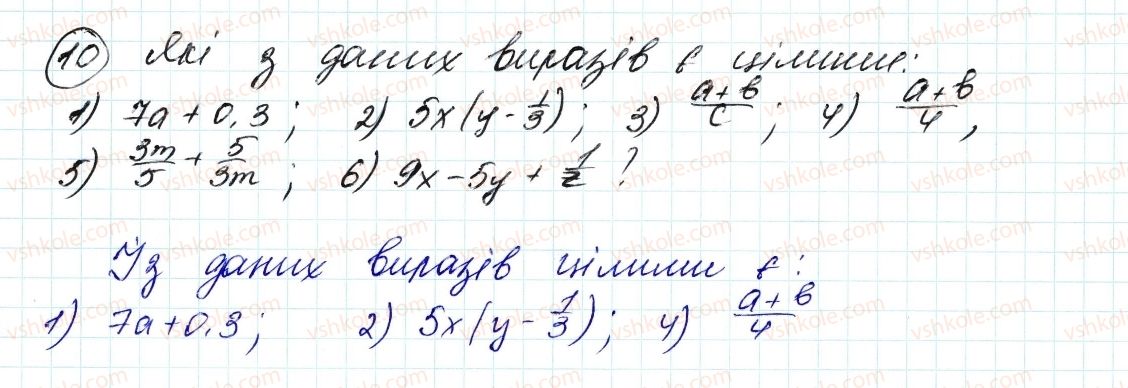 10 Які з даних виразів є цілими:
1) 7a + 0,3; 2) 5x(y - 1/3); 3) (a+b)/c; 4) (a+b)/4,
5) 3m/5 + 5/3m; 6) 9x - 5y + 1/z ?
Із даних виразів цілими є:
1) 7a + 0,3; 2) 5x(y - 1/3); 4) (a+b)/4